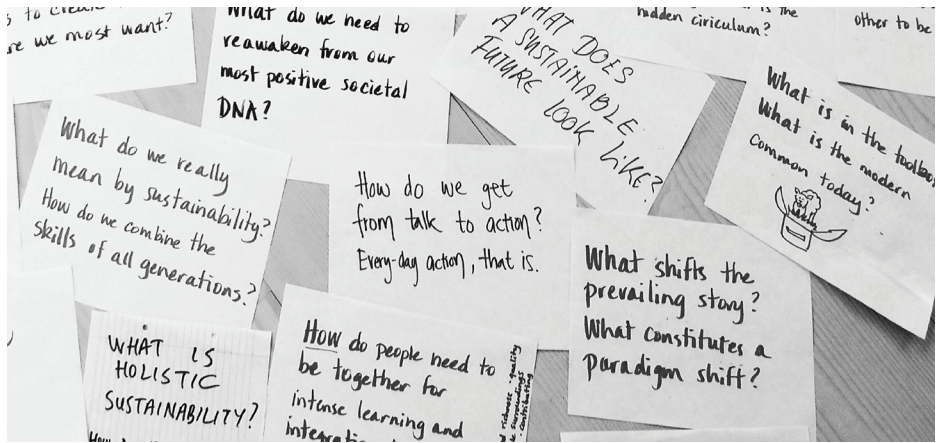 s to create
re we most want?
What do we need to
reawaken from our
most positive societal
DNA?
WHAT DOES
A SUSTAINABLE
FUTURE LOOK
LIKE?
is the
hidden ciriculum?
other to be
What is in the toolbox
What is the modern
common today?
What do we really
mean by sustainability?
How do we combine the
skills of all generations?
How do we get
from talk to action?
Every-day action, that is.
What shifts the
prevailing story?
What constitutes a
paradigm shift?
WHAT IS
HOLISTIC
SUSTAINABILITY?
How do people need to
be together for
intense learning and
richness · quality
surroundings
· contributing